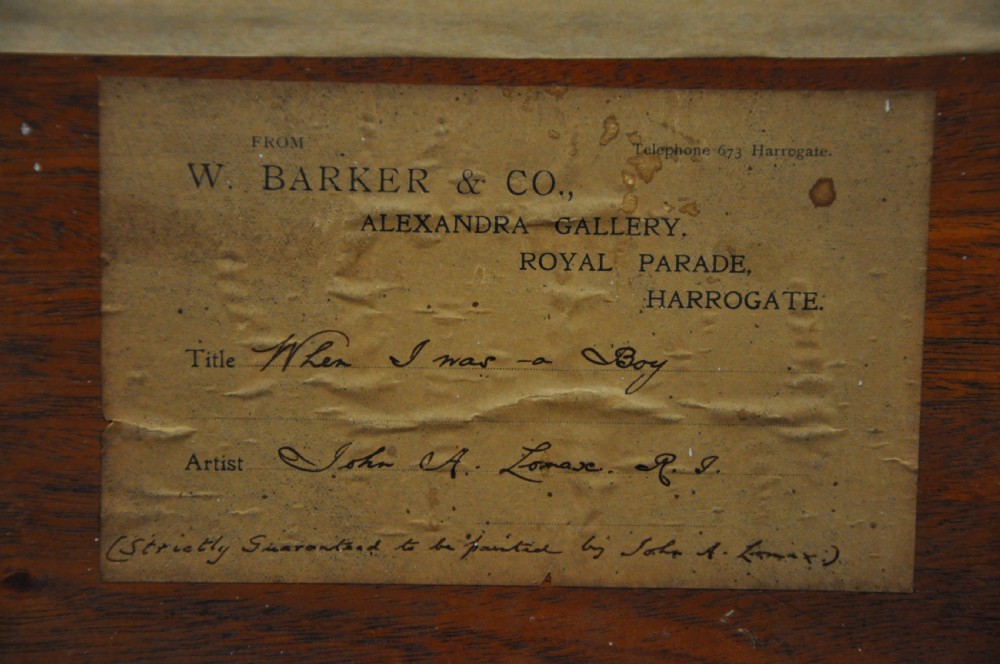 FROM
Telephone 673 Harrogate.
W. BARKER & CO.,
ALEXANDRA GALLERY,
ROYAL PARADE,
HARROGATE.
Title When I was a Boy
Artist John A. Lomax. R. I.
(Strictly Guaranteed to be painted by John A. Lomax.)